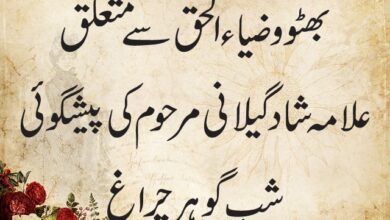 بھٹو و ضیاء الحق سے متعلق
علامہ شاد گیلانی مرحوم کی پیشگوئی
شب گوہر چراغ